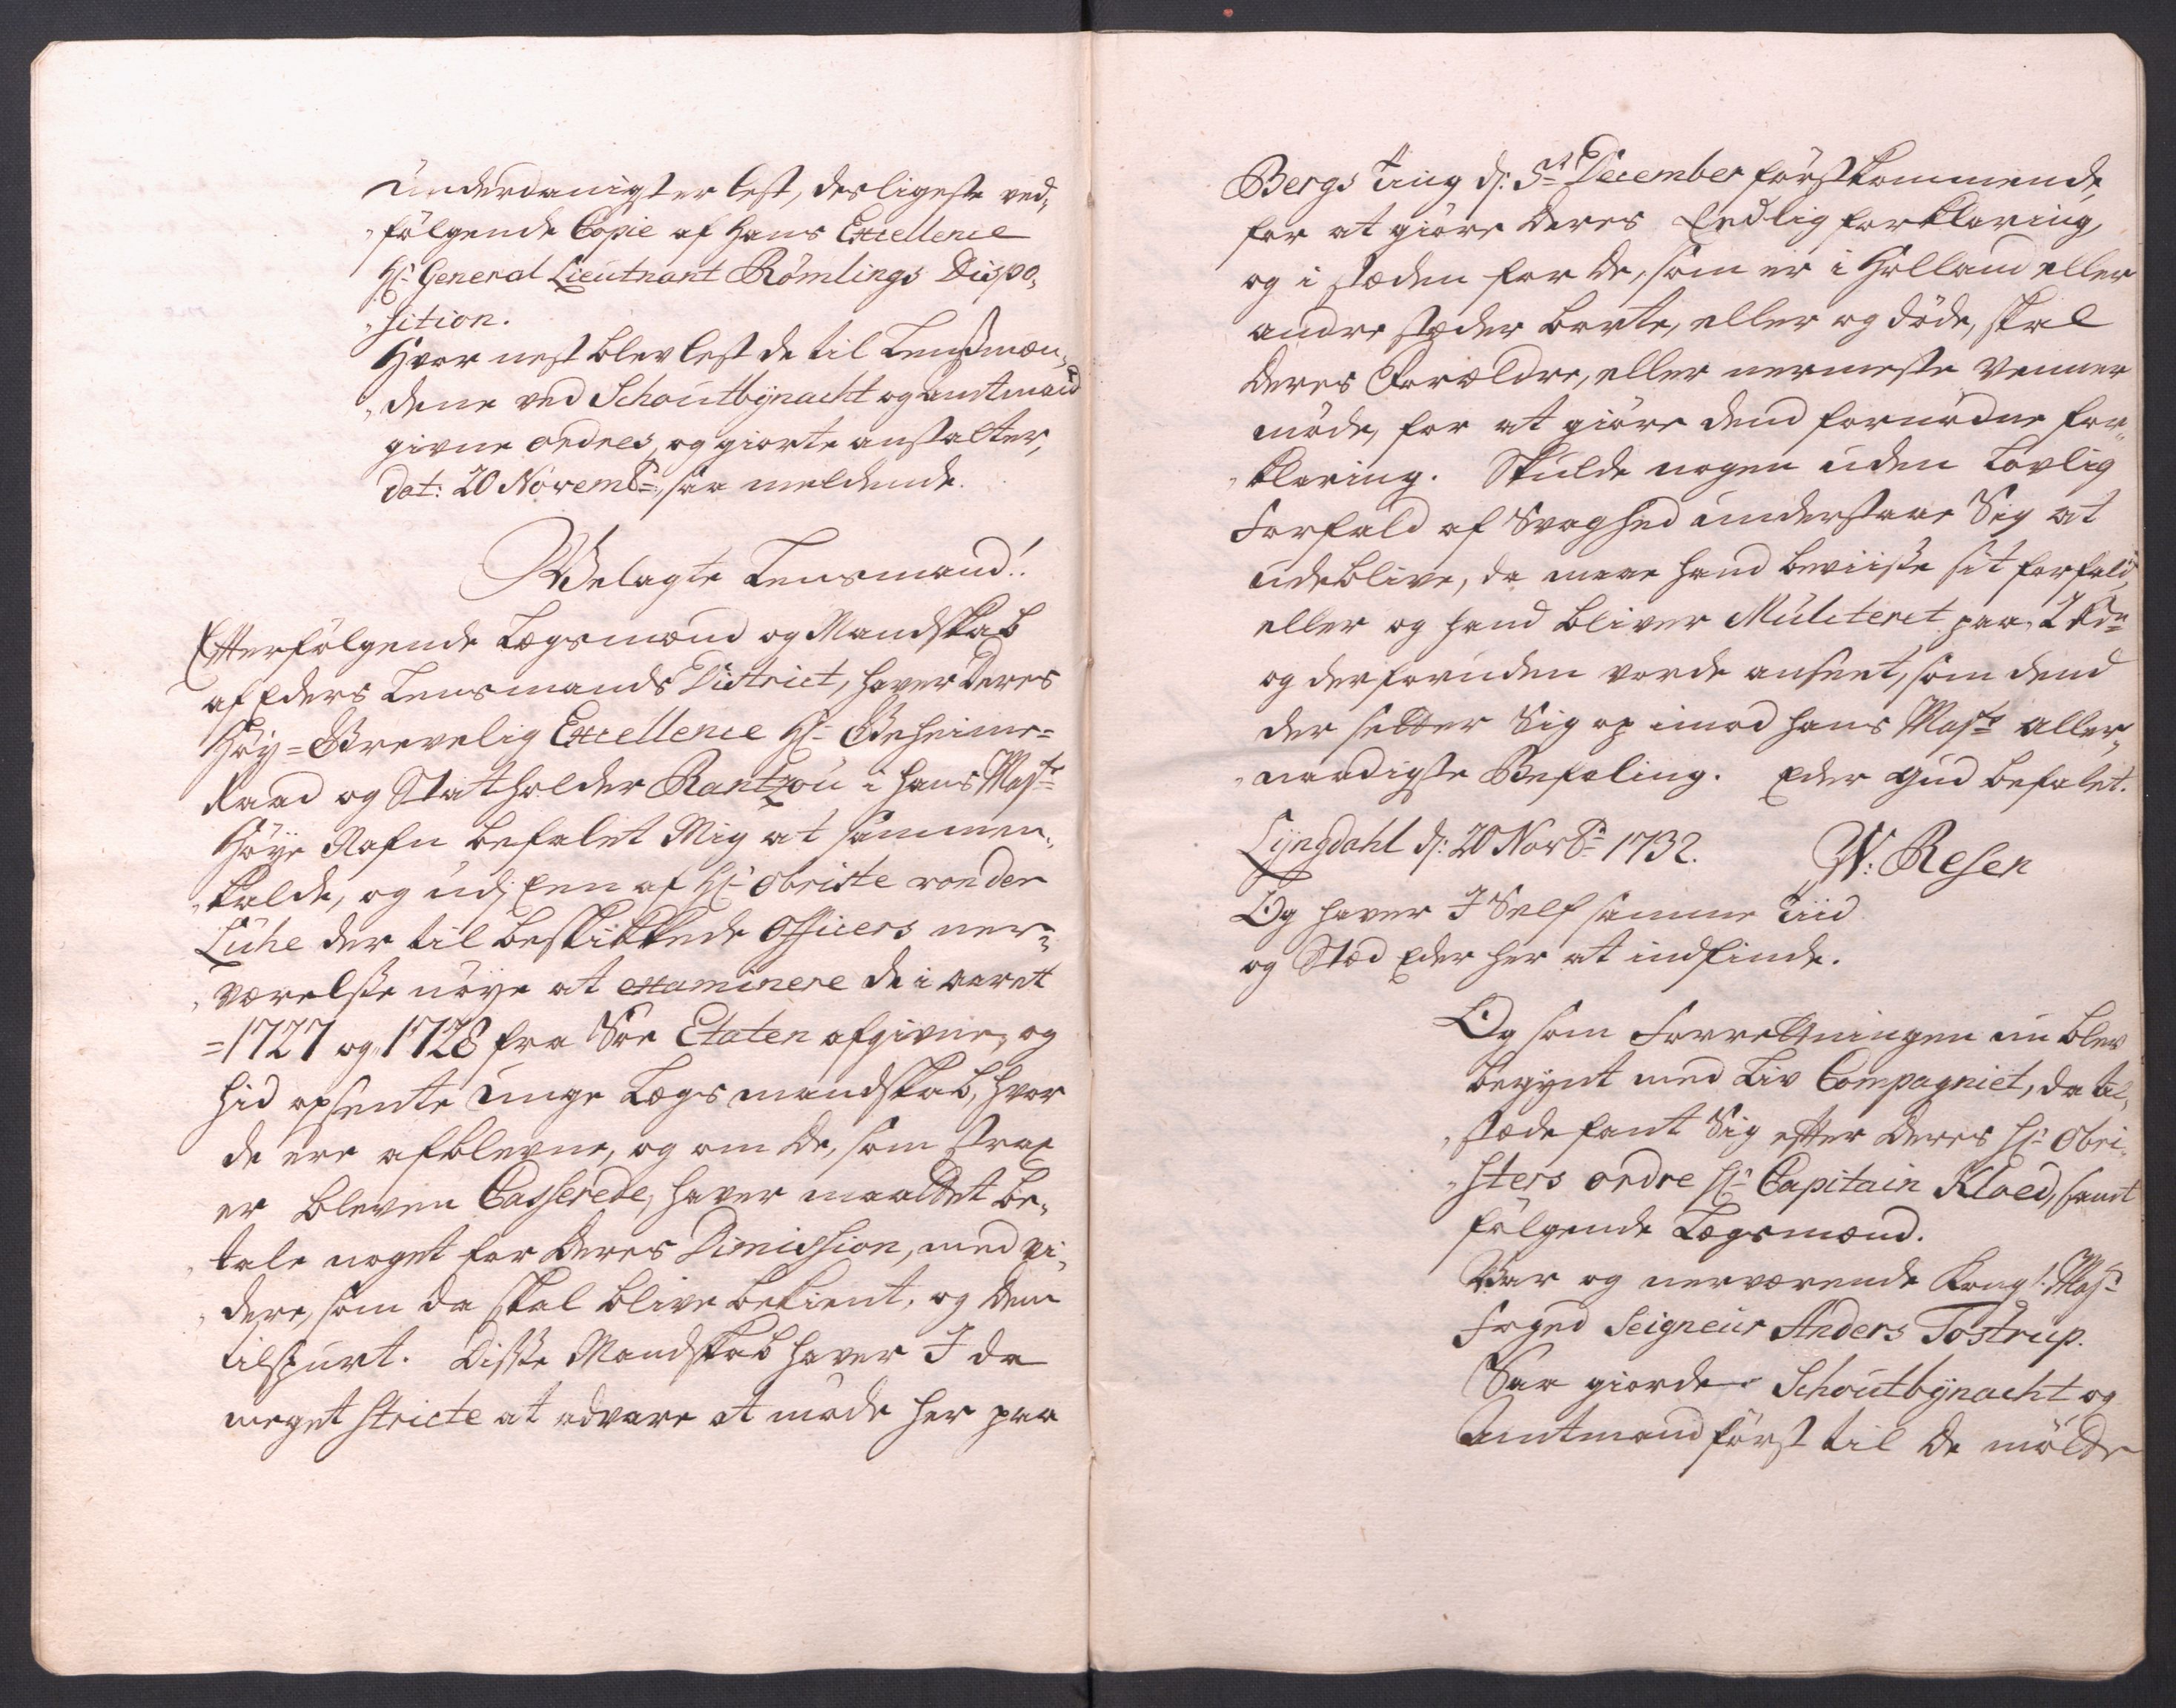 underdanigst er lest, desligeste ved„
„følgende Copie af Hans Excellence
Hr: General Lieutnant Römlings Dispo„
„sition.
Hvor nest blev lest de til Lensmæn„
„dene ved Schoutbynacht og Amtmand
givne ordres, og giorte anstalter,
dat: 20 Novembr: saa meldende.
Welagte Lensmand!
Efterfølgende Legsmænd og Mandskab
af Eders Lensmands District, haver Deres
Høy=Grevelig Excellence Hr: Geheime=
Raad og Statholder Rantzou i Hans Mayts:
Høye Nafn befalet Mig at sammen„
„kalde, og udj Een af Hr: Obriste von der
Lühe der til beskikkede Officers ner„
„værelse nøye at examinere de i aaret
=1727 og 1728 fra Søe Etaten afgivne, og
hid opsente unge Legs mandskab, hvor
de ere afblevne, og om de, som strax
er bleven Casserede, haver maattet be„
„tale noget for Deres Dimission, med vi„
„dere, som da skal blive bekient, og dem
tilspurt. Disse Mandskab haver I da
meget stricte at advare at møde her paa
Bergs Ting d: 5te December førstkommende,
for at giøre Deres Eedlig forklaring,
og i stæden for de, som er i Holland eller
andre stæder borte, eller og døde, skal
Deres Forældre, eller nermeste Venner
møde, for at giøre dend fornødne for„
„klaring. Skulde nogen uden Lovlig
Forfald af Svaghed understaae Sig at
udeblive, da maae hand beviise sit forfald,
eller og hand bliver Mulcteret paa 2 Rdr
og desforuden vorde anseet, som dend
der setter Sig op imod Hans Mayts: Aller„
„naadigste Befaling. Eder Gud befalet.
Lyngdahl d: 20 Novbr: 1732. W: Resen
Og haver I Self samme Tiid
og Stæd Eder her at indfinde.
Og som Forrettningen nu blev
begynt med Liv Compagniet, da til„
„stæde fant Sig efter Deres Hr: Obri„
„sters ordre Hr: Capitain Kloed, samt
følgende Legsmænd.
Var og nerværende Kongl: Mayts:
Foged Seigneur Anders Tostrup.
Saa giorde Schoutbynacht og
Amtmand først til de mødte